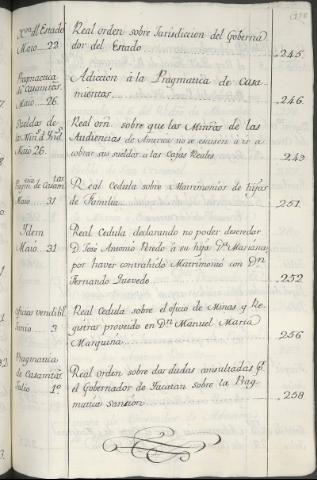 Real orden sobre Jurisdiccion del Goberna
dor del Estado
245.
Mayo 22.
Pragmatica
de Casamtos.
Mayo 26.
Adiccion à la Pragmatica de Casa
mientos
246.
Sueldos de
Maio 26.
Real orn. sobre que los Minros de las
Audiencias de America no se escusen à ir a
cobrar sus sueldos à las Cajas Reales
249
Maio 31
Real Cedula sobre Matrimonios de hijos
de Familia
251.
Idem
Maio 31
Real Cedula declarando no poder desredar
D. José Antonio Peredo à su hija Da. Mariana
por haver contrahido Matrimonio con Dn.
Fernando Quevedo
252
Oficios vendibl.
Junio 3
Real Cedula sobre el oficio de Minas y Re
gistros proveido en Dn. Manuel Maria
Marquina
256
Pragmatica
de Casamtos.
Julio 1º
Real orden sobre dos dudas consultadas pr.
el Gobernador de Yucatan sobre la Prag
matica sansion
258